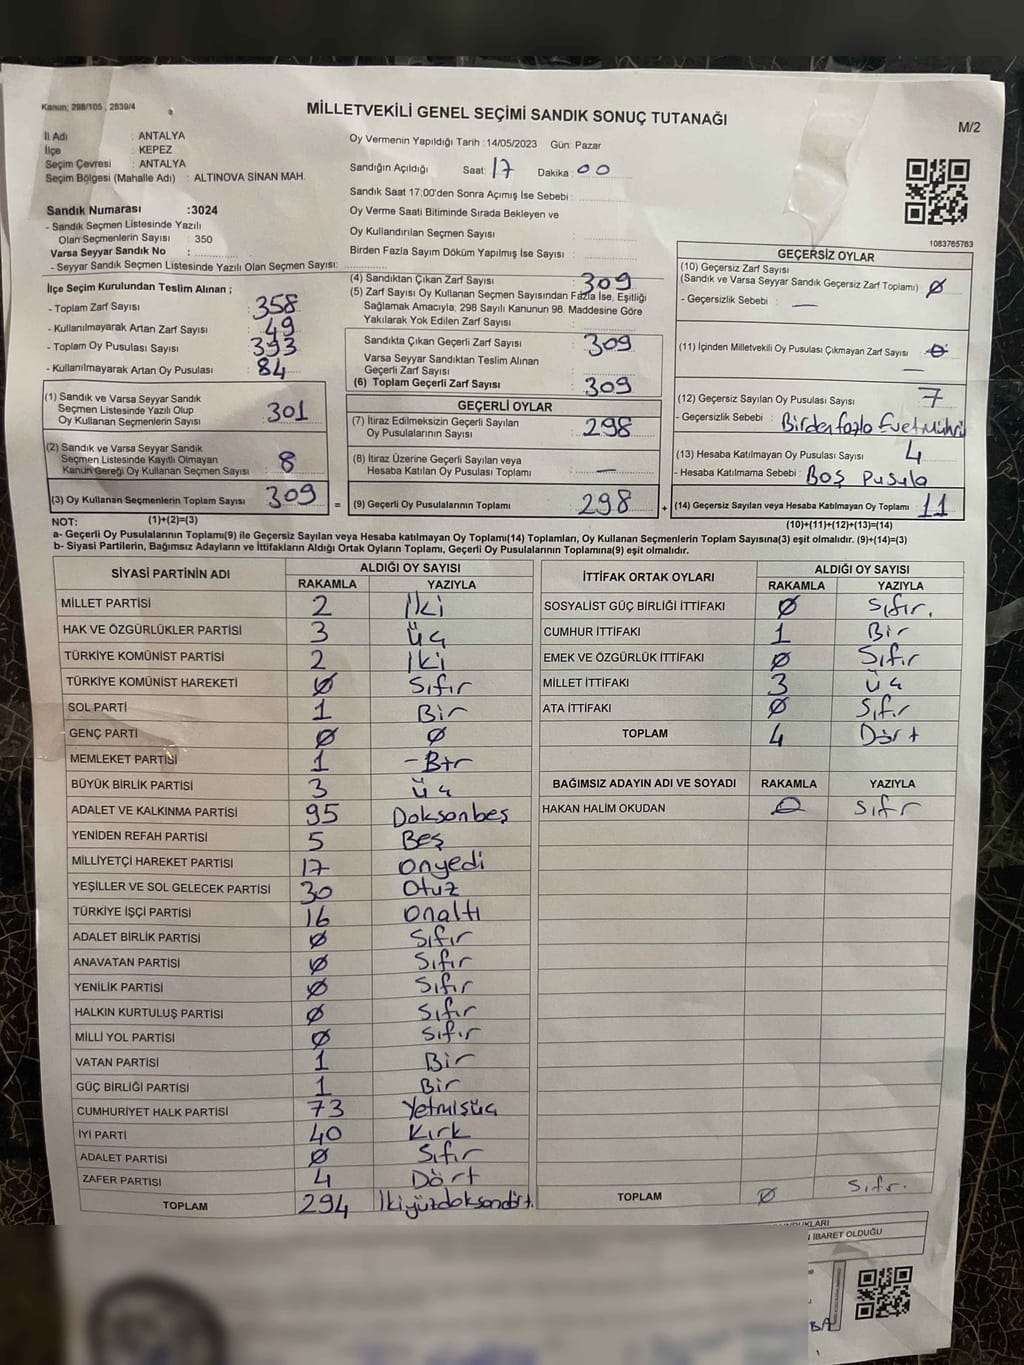 Kanun; 298/105 , 2839/4
MİLLETVEKİLİ GENEL SEÇİMİ SANDIK SONUÇ TUTANAĞI
M/2
İl Adı : ANTALYA
İlçe : KEPEZ
Seçim Çevresi : ANTALYA
Seçim Bölgesi (Mahalle Adı) : ALTINOVA SİNAN MAH.
Oy Vermenin Yapıldığı Tarih :14/05/2023 Gün: Pazar
Sandığın Açıldığı Saat: 17 Dakika : 00
Sandık Saat 17:00'den Sonra Açımış İse Sebebi :
Oy Verme Saati Bitiminde Sırada Bekleyen ve
Oy Kullandırılan Seçmen Sayısı
Birden Fazla Sayım Döküm Yapılmış İse Sayısı :
Sandık Numarası :3024
- Sandık Seçmen Listesinde Yazılı
Olan Seçmenlerin Sayısı : 350
Varsa Seyyar Sandık No :
- Seyyar Sandık Seçmen Listesinde Yazılı Olan Seçmen Sayısı:
1083765763
İlçe Seçim Kurulundan Teslim Alınan ;
- Toplam Zarf Sayısı : 358
- Kullanılmayarak Artan Zarf Sayısı : 49
- Toplam Oy Pusulası Sayısı : 393
- Kullanılmayarak Artan Oy Pusulası : 84
(1) Sandık ve Varsa Seyyar Sandık
Seçmen Listesinde Yazılı Olup
Oy Kullanan Seçmenlerin Sayısı : 301
(2) Sandık ve Varsa Seyyar Sandık
Seçmen Listesinde Kayıtlı Olmayan
Kanun Gereği Oy Kullanan Seçmen Sayısı : 8
(3) Oy Kullanan Seçmenlerin Toplam Sayısı : 309
(4) Sandıktan Çıkan Zarf Sayısı : 309
(5) Zarf Sayısı Oy Kullanan Seçmen Sayısından Fazla İse, Eşitliği
Sağlamak Amacıyla, 298 Sayılı Kanunun 98. Maddesine Göre
Yakılarak Yok Edilen Zarf Sayısı :
Sandıkta Çıkan Geçerli Zarf Sayısı : 309
Varsa Seyyar Sandıktan Teslim Alınan
Geçerli Zarf Sayısı :
(6) Toplam Geçerli Zarf Sayısı : 309
GEÇERLİ OYLAR
(7) İtiraz Edilmeksizin Geçerli Sayılan
Oy Pusulalarının Sayısı : 298
(8) İtiraz Üzerine Geçerli Sayılan veya
Hesaba Katılan Oy Pusulası Toplamı : —
= (9) Geçerli Oy Pusulalarının Toplamı : 298
GEÇERSİZ OYLAR
(10) Geçersiz Zarf Sayısı
(Sandık ve Varsa Seyyar Sandık Geçersiz Zarf Toplamı) : Ø
- Geçersizlik Sebebi : —
(11) İçinden Milletvekili Oy Pusulası Çıkmayan Zarf Sayısı : Ø
—
(12) Geçersiz Sayılan Oy Pusulası Sayısı : 7
- Geçersizlik Sebebi : Birden fazla Evet Mührü
(13) Hesaba Katılmayan Oy Pusulası Sayısı : 4
- Hesaba Katılmama Sebebi : Boş Pusula
+ (14) Geçersiz Sayılan veya Hesaba Katılmayan Oy Toplamı : 11
NOT: (1)+(2)=(3)
(10)+(11)+(12)+(13)=(14)
a- Geçerli Oy Pusulaları Toplamı(9) ile Geçersiz Sayılan veya Hesaba katılmayan Oy Toplamı(14) Toplamları, Oy Kullanan Seçmenlerin Toplam Sayısına(3) eşit olmalıdır. (9)+(14)=(3)
b- Siyasi Partilerin, Bağımsız Adayların ve İttifakların Aldığı Ortak Oyların Toplamı, Geçerli Oy Pusulalarının Toplamına(9) eşit olmalıdır.
SİYASİ PARTİNİN ADI ALDIĞI OY SAYISI
RAKAMLA YAZIYLA
MİLLET PARTİSİ 2 İki
HAK VE ÖZGÜRLÜKLER PARTİSİ 3 üç
TÜRKİYE KOMÜNİST PARTİSİ 2 İki
TÜRKİYE KOMÜNİST HAREKETİ Ø Sıfır
SOL PARTİ 1 Bir
GENÇ PARTİ Ø Ø
MEMLEKET PARTİSİ 1 -Bir
BÜYÜK BİRLİK PARTİSİ 3 üç
ADALET VE KALKINMA PARTİSİ 95 Doksanbeş
YENİDEN REFAH PARTİSİ 5 Beş
MİLLİYETÇİ HAREKET PARTİSİ 17 onyedi
YEŞİLLER VE SOL GELECEK PARTİSİ 30 otuz
TÜRKİYE İŞÇİ PARTİSİ 16 onaltı
ADALET BİRLİK PARTİSİ Ø Sıfır
ANAVATAN PARTİSİ Ø Sıfır
YENİLİK PARTİSİ Ø Sıfır
HALKIN KURTULUŞ PARTİSİ Ø Sıfır
MİLLİ YOL PARTİSİ Ø Sıfır
VATAN PARTİSİ 1 Bir
GÜÇ BİRLİĞİ PARTİSİ 1 Bir
CUMHURİYET HALK PARTİSİ 73 Yetmişüç
İYİ PARTİ 40 Kırk
ADALET PARTİSİ Ø Sıfır
ZAFER PARTİSİ 4 Dört
TOPLAM 294 İkiyüzdoksandört.
İTTİFAK ORTAK OYLARI ALDIĞI OY SAYISI
RAKAMLA YAZIYLA
SOSYALİST GÜÇ BİRLİĞİ İTTİFAKI Ø Sıfır.
CUMHUR İTTİFAKI 1 Bir
EMEK VE ÖZGÜRLÜK İTTİFAKI Ø Sıfır
MİLLET İTTİFAKI 3 üç
ATA İTTİFAKI Ø Sıfır
TOPLAM 4 Dört
BAĞIMSIZ ADAYIN ADI VE SOYADI RAKAMLA YAZIYLA
HAKAN HALİM OKUDAN 0 Sıfr
TOPLAM Ø Sıfr.
İBARET OLDUĞU